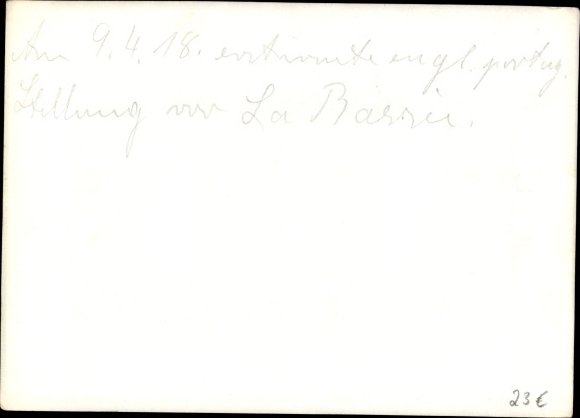 Am 9.4.18. erstürmte engl. portug.
Stellung vor La Bassée.
23 €